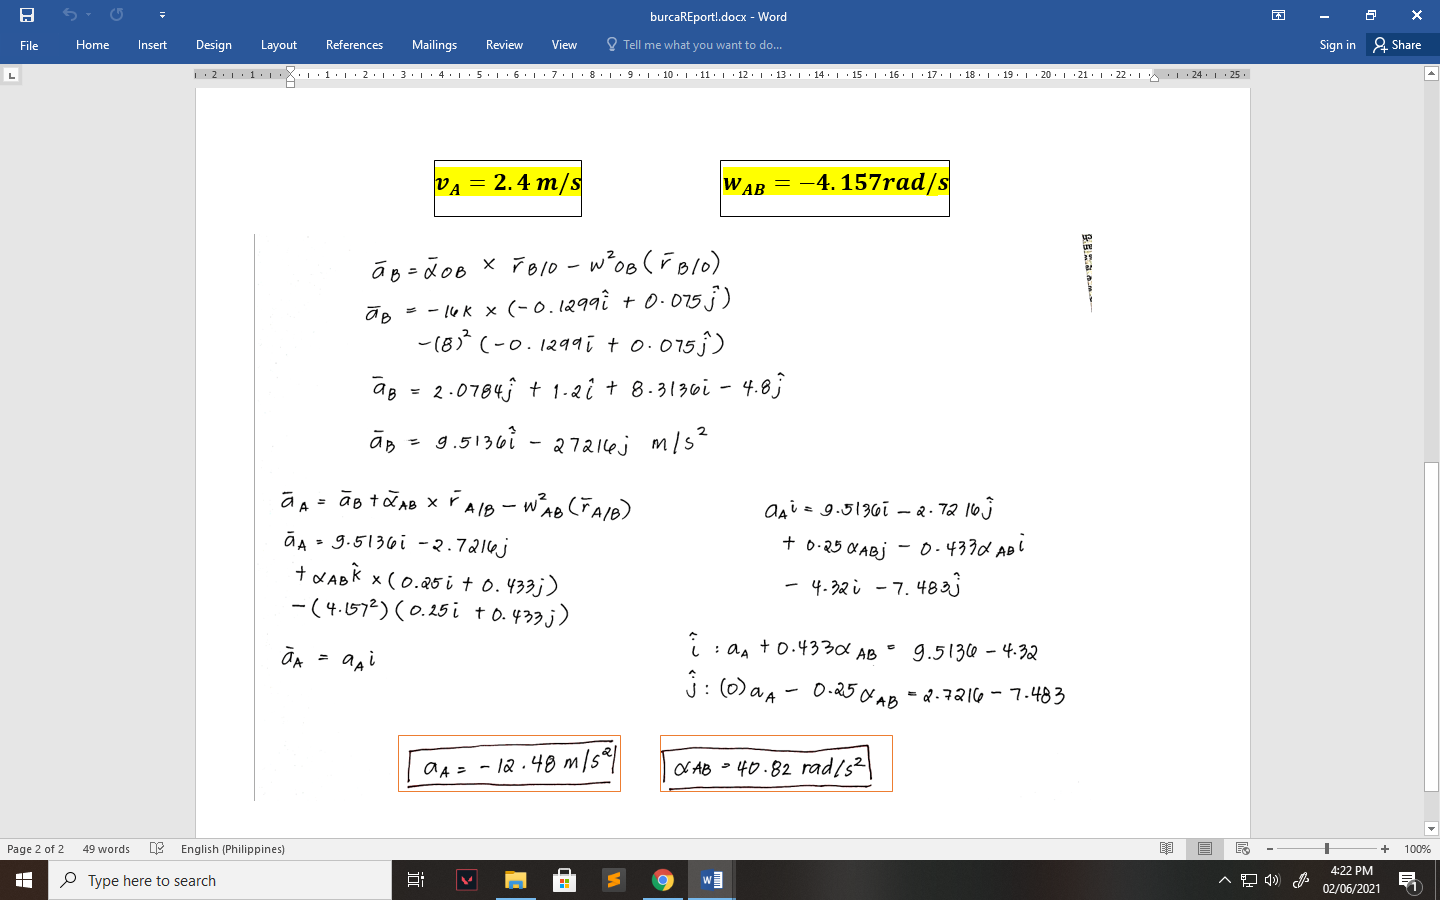 burcaREport!.docx - Word
File Home Insert Design Layout References Mailings Review View Tell me what you want to do... Sign in Share
2 1 1 2 3 4 5 6 7 8 9 10 11 12 13 14 15 16 17 18 19 20 21 22 24 25
v_A = 2.4 m/s w_AB = −4.157rad/s
ā_B = ᾱ_OB × r̄_B/O − w²_OB (r̄_B/O)
ā_B = −16k × (−0.1299î + 0.075ĵ)
−(8)² (−0.1299ī + 0.075ĵ)
ā_B = 2.0784ĵ + 1.2î + 8.3136i − 4.8ĵ
ā_B = 9.5136î − 27216j m/s²
ā_A = ā_B + ᾱ_AB × r̄_A/B − w²_AB (r̄_A/B)
ā_A = 9.5136i − 2.7216j
+ α_AB k̂ × (0.25i + 0.433j)
−(4.157²)(0.25i + 0.433j)
ā_A = a_A i
a_A i = 9.5136i − 2.7216ĵ
+ 0.25α_AB j − 0.433α_AB i
− 4.32i − 7.483ĵ
î : a_A + 0.433α_AB = 9.5136 − 4.32
ĵ : (0)a_A − 0.25α_AB = 2.7216 − 7.483
a_A = −12.48 m/s² α_AB = 40.82 rad/s²
Page 2 of 2 49 words English (Philippines) 100%
Type here to search 4:22 PM
02/06/2021 1